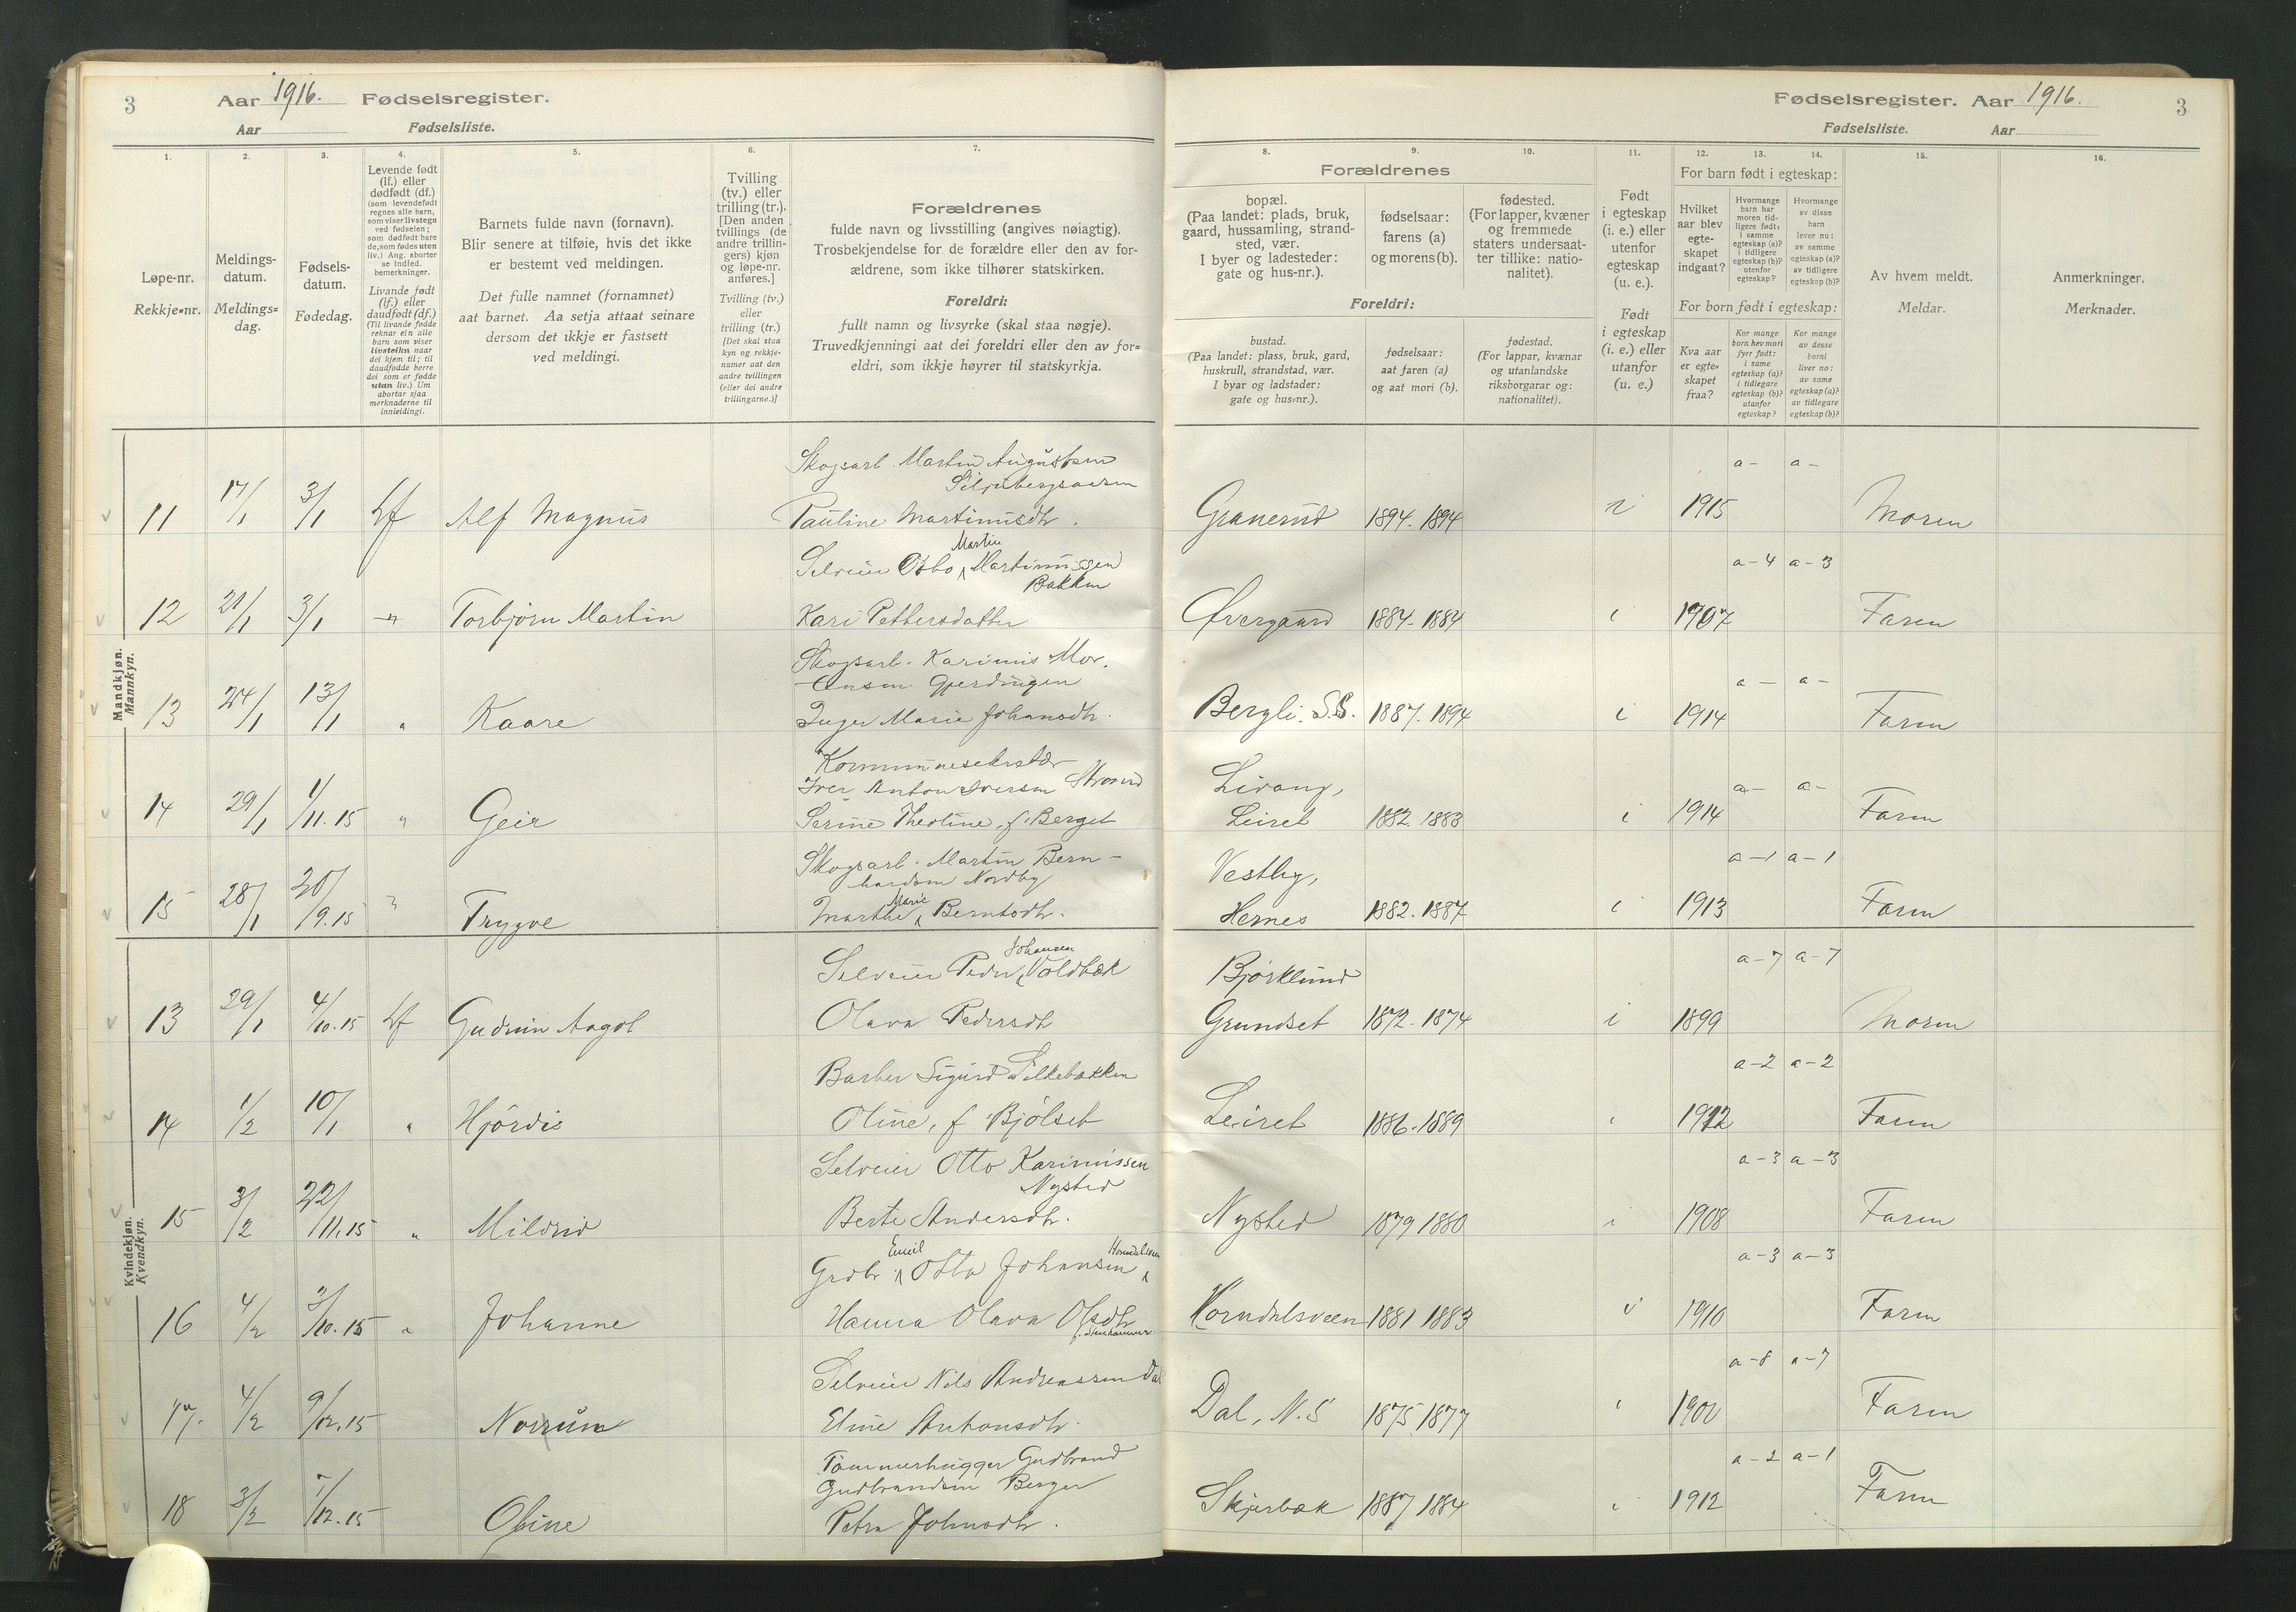 3 Aar 1916. Fødselsregister.
Aar Fødselsliste.
Fødselsregister. Aar 1916. 3
Fødselsliste. Aar
1. 2. 3. 4. 5. 6. 7.
Løpe-nr.
Rekkje-nr.
Meldings-
datum.
Meldings-
dag.
Fødsels-
datum.
Fødedag.
Levende født
(lf.) eller
dødfødt (df.)
(som levendefødt
regnes alle barn,
som viser livstegn
ved fødselen;
som dødfødt bare
de, som fødes uten
liv.) Ang. aborter
se indled.
bemerkninger.
Livande født
(lf.) eller
daudfødt (df.)
(Til livande fødde
reknar ein alle
barn som viser
livsteikn naar
dei kjem til; til
daudfødde berre
dei som er fødde
utan liv.) Um
abortar sjaa
merknaderne til
innleidingi.
Barnets fulde navn (fornavn).
Blir senere at tilføie, hvis det ikke
er bestemt ved meldingen.
Det fulle namnet (fornamnet)
aat barnet. Aa setja attaat seinare
dersom det ikkje er fastsett
ved meldingi.
Tvilling
(tv.) eller
trilling (tr.).
[Den anden
tvillings (de
andre trillin-
gers) kjøn
og løpe-nr.
anføres.]
Tvilling (tv.)
eller
trilling (tr.)
[Det skal staa
kyn og rekkje-
numer aat den
andre tvillingen
(eller dei andre
trillingarne.)]
Forældrenes
fulde navn og livsstilling (angives nøiagtig).
Trosbekjendelse for de forældre eller den av for-
ældrene, som ikke tilhører statskirken.
Foreldri:
fullt namn og livsyrke (skal staa nøgje).
Truvedkjenningi aat dei foreldri eller den av for-
eldri, som ikkje høyrer til statskyrkja.
8. 9. 10. 11. 12. 13. 14. 15. 16.
Forældrenes
bopæl.
(Paa landet: plads, bruk,
gaard, hussamling, strand-
sted, vær.
I byer og ladesteder:
gate og hus-nr.).
fødselsaar:
farens (a)
og morens (b).
fødested.
(For lapper, kvæner
og fremmede
staters undersaat-
ter tillike: natio-
nalitet).
Foreldri:
bustad.
(Paa landet: plass, bruk, gard,
huskrull, strandstad, vær.
I byar og ladstader:
gate og hus-nr.).
fødselsaar:
aat faren (a)
og aat mori (b).
fødestad.
(For lappar, kvænar
og utanlandske
riksborgarar og:
nationalitet).
Født
i egteskap
(i. e.) eller
utenfor
egteskap
(u. e.).
Født
i egteskap
(i. e.) eller
utanfor
(u. e.)
For barn født i egteskap:
Hvilket
aar blev
egte-
skapet
indgaat?
Hvormange
barn har
moren tid-
ligere født:
i samme
egteskap (a)?
i tidligere
egteskap (b)?
utenfor
egteskap?
Hvormange
av disse
barn
lever nu:
av samme
egteskap (a)?
av tidligere
egteskap (b)?
For born født i egteskap:
Kva aar
er egte-
skapet
fraa?
Kor mange
born hev mori
fyrr født:
i same
egteskap (a)?
i tidlegare
egteskap (b)?
utanfor
egteskap?
Kor mange
av desse
borni
liver no:
av same
egteskap (a)?
av tidlegare
egteskap (b)?
Av hvem meldt.
Meldar.
Anmerkninger.
Merknader.
Mandkjøn.
Mannkyn.
Skogsarb. Martin Augustsen
11 17/1 3/1 Lf Alf Magnus Pauline Martinusdtr. Granerud 1894. 1894 i 1915 a- a- Moren
Martin
Selveier Otto Martinussen
Bakken
12 21/1 3/1 -"- Torbjørn Martin Kari Pettersdatter Øvergaard 1884-1884 i 1907 a-4 a-3 Faren
Skogsarb. Karinius Mor-
tensen Gjerdingen
13 24/1 13/1 " Kaare Inger Marie Johansdtr. Bergli. S.S. 1887. 1894 i 1914 a- a- Faren
Kommunesekretær
Iver Anton Iversen Strand Livang,
14 29/1 1/11.15 " Geir Serine Theoline, f. Berget Leiret 1882. 1883 i 1914 a- a- Faren
Skogsarb. Martin Bern-
hardsen Nordby Vestby,
Marie
15 28/1 20/9.15 " Trygve Marthe Berntsdtr. Hernes 1882. 1887 i 1913 a-1 a-1 Faren
Kvindekjøn.
Kvendkyn.
Johansen
Selveier Peder Voldbæk Bjørklund
13 29/1 4/10.15 Lf Gudrun Aagot Olava Pedersdtr Grundset 1872-1874 i 1899 a-7 a-7 Moren
Barber Sigurd Silkebækken
14 1/2 10/1 " Hjørdis Oline, f. Bjølset Leiret 1886.1889 i 1912 a-2 a-2 Faren
Selveier Otto Karinussen
Nysted
15 3/2 22/11.15 " Mildrid Berte Andersdtr. Nysted 1879 1880 i 1908 a-3 a-3 Faren
Emil
Grdbr. Otto Johansen
16 4/2 3/10.15 " Johanne Hanna Olava Olsdtr Horndalsveen 1881 1883 i 1910 a-3 a-3 Faren
Selveier Nils Andreassen Dal
17. 4/2 9/12.15 Norrun Eline Antonsdtr. Dal, N.S 1875.1877 i 1900 a-8 a-7 Faren
Tømmerhugger Gudbrand
Gudbrandsen Berger
18 3/2 1/12.15 Oline Petra Johnsdtr. Skjærbæk 1887 1884 i 1912 a-2 a-1 Faren